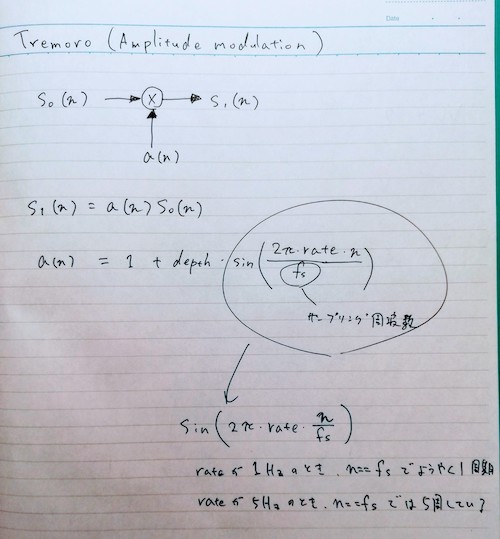 Date
Tremoro (Amplitude modulation)
S₀(n) → × → S₁(n)
a(n)
S₁(n) = a(n) S₀(n)
a(n) = 1 + depth · sin(2π·rate·n / fs)
サンプリング周波数
sin(2π·rate·n/fs)
rateが1Hzのとき、n==fsでようやく1周期
rateが5Hzのとき、n==fsでは5周している